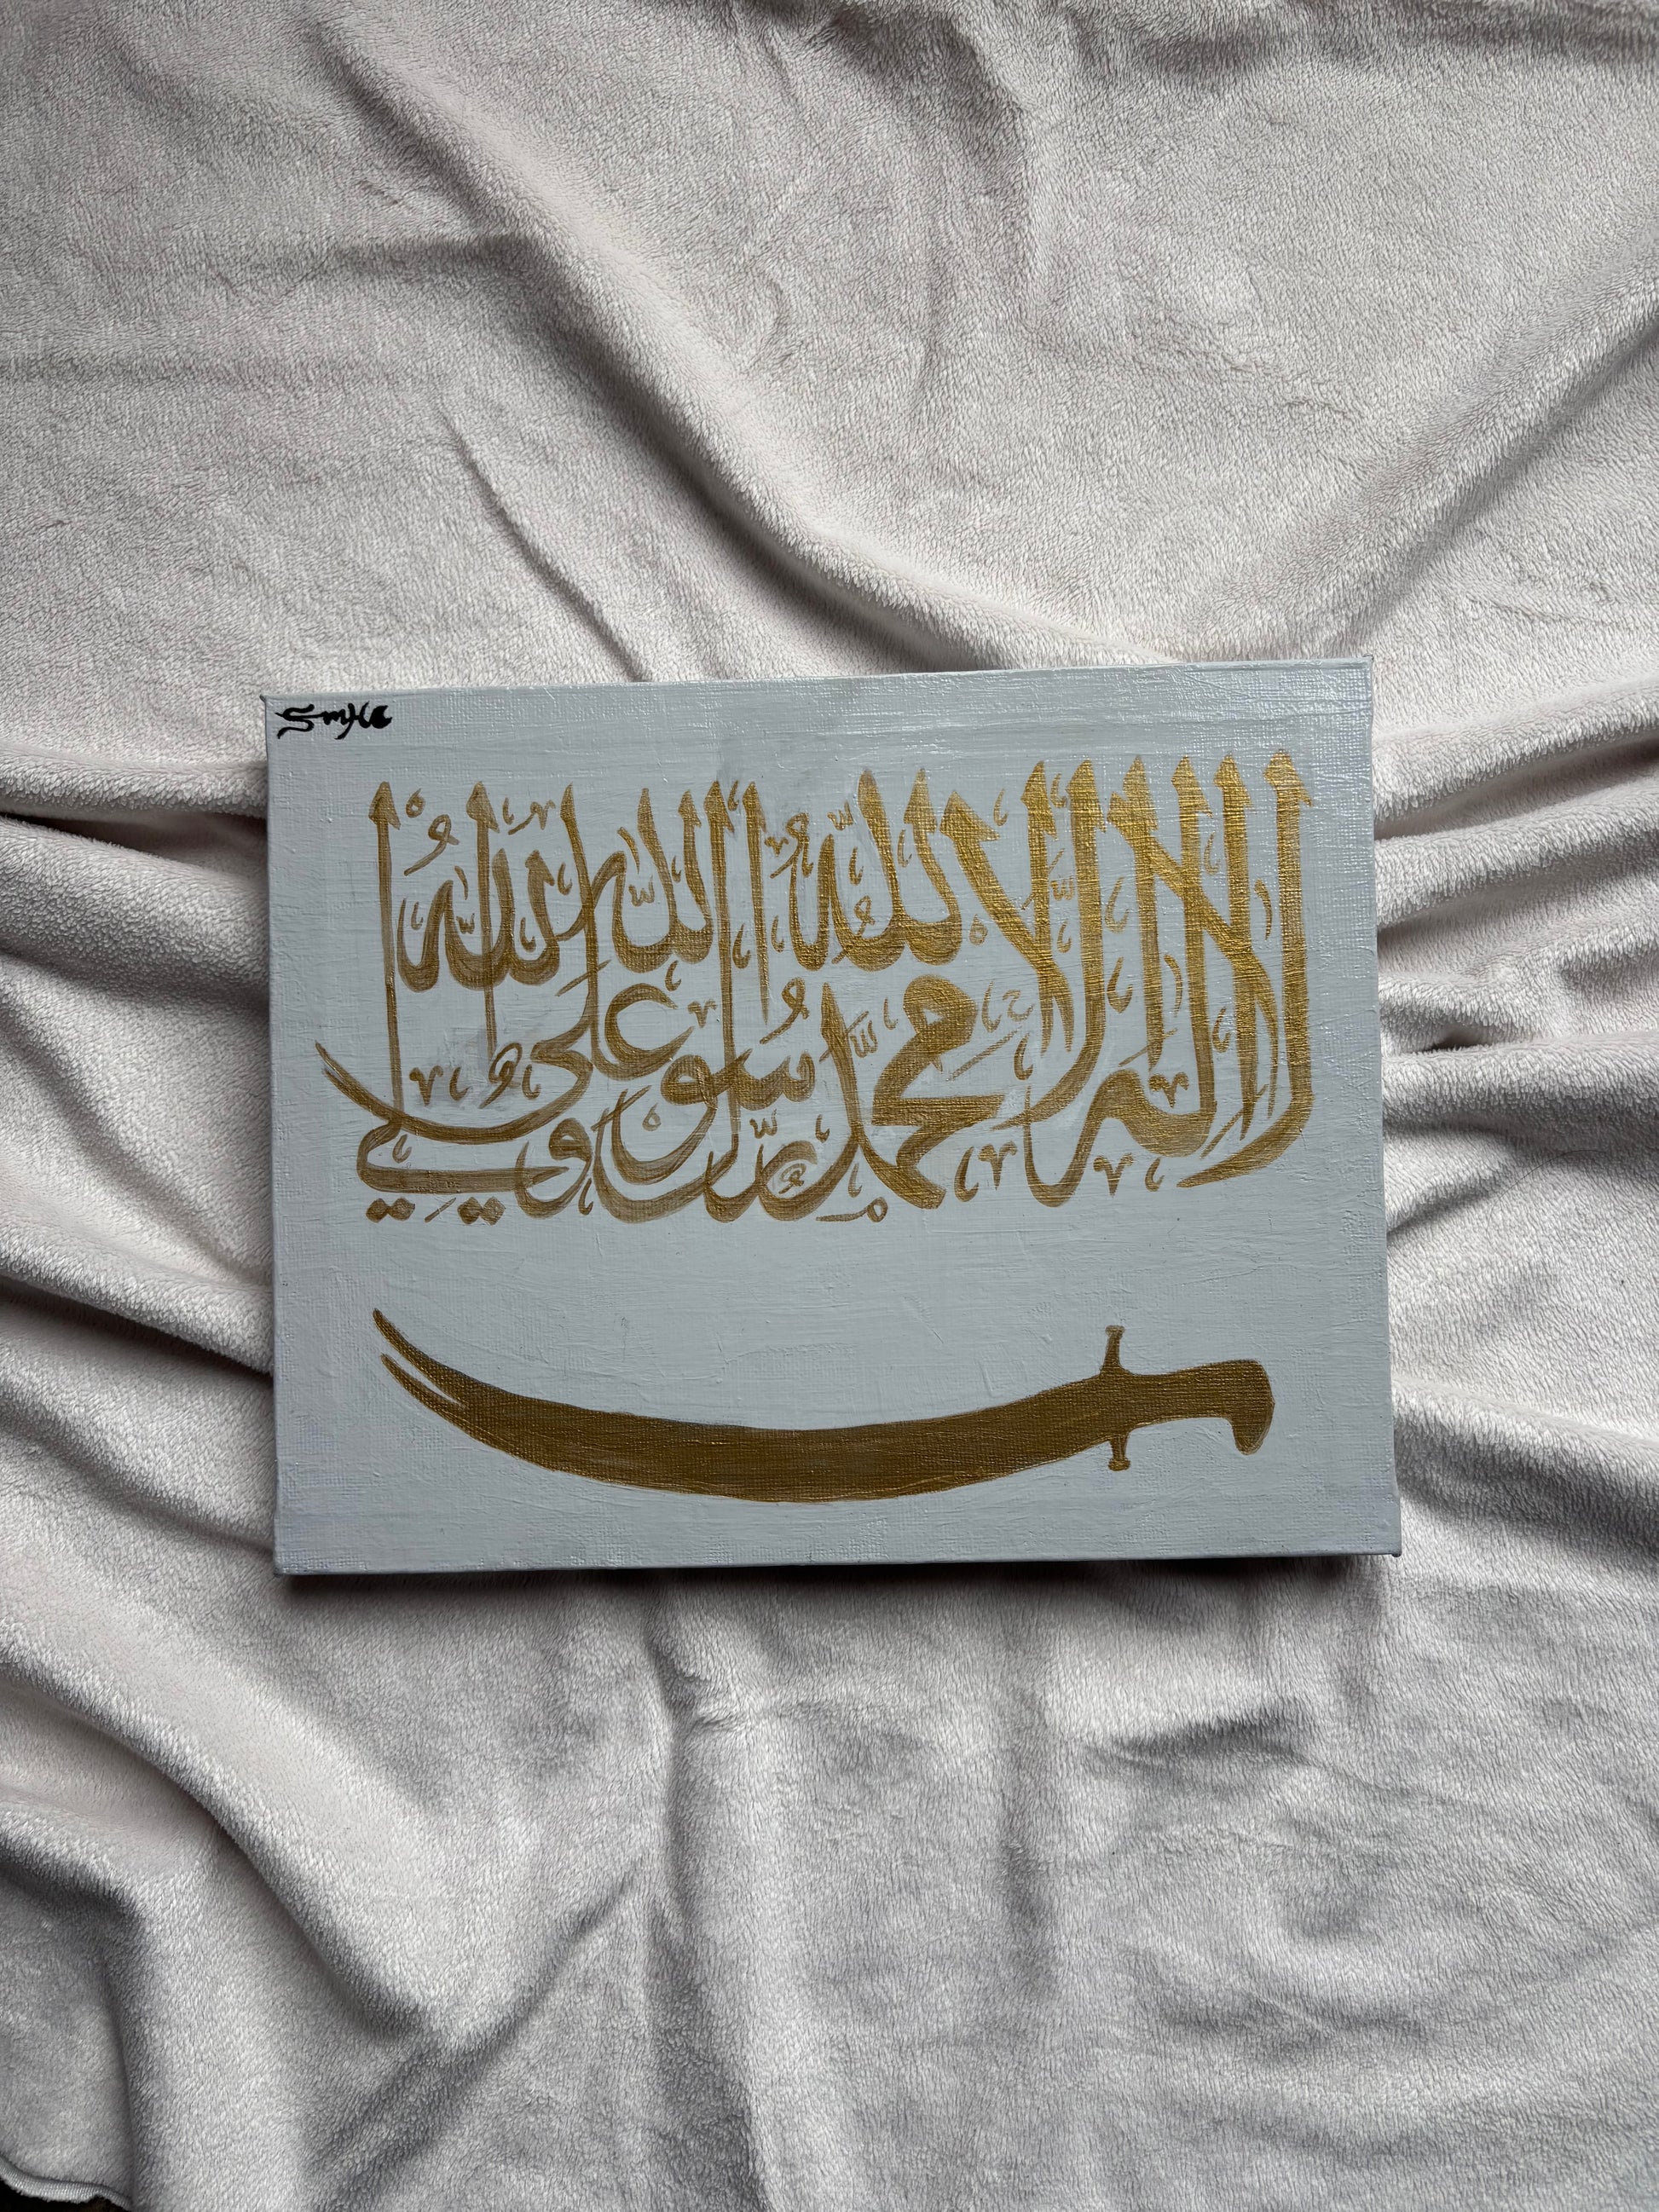 لا اله الا الله محمد رسول الله علي ولي الله